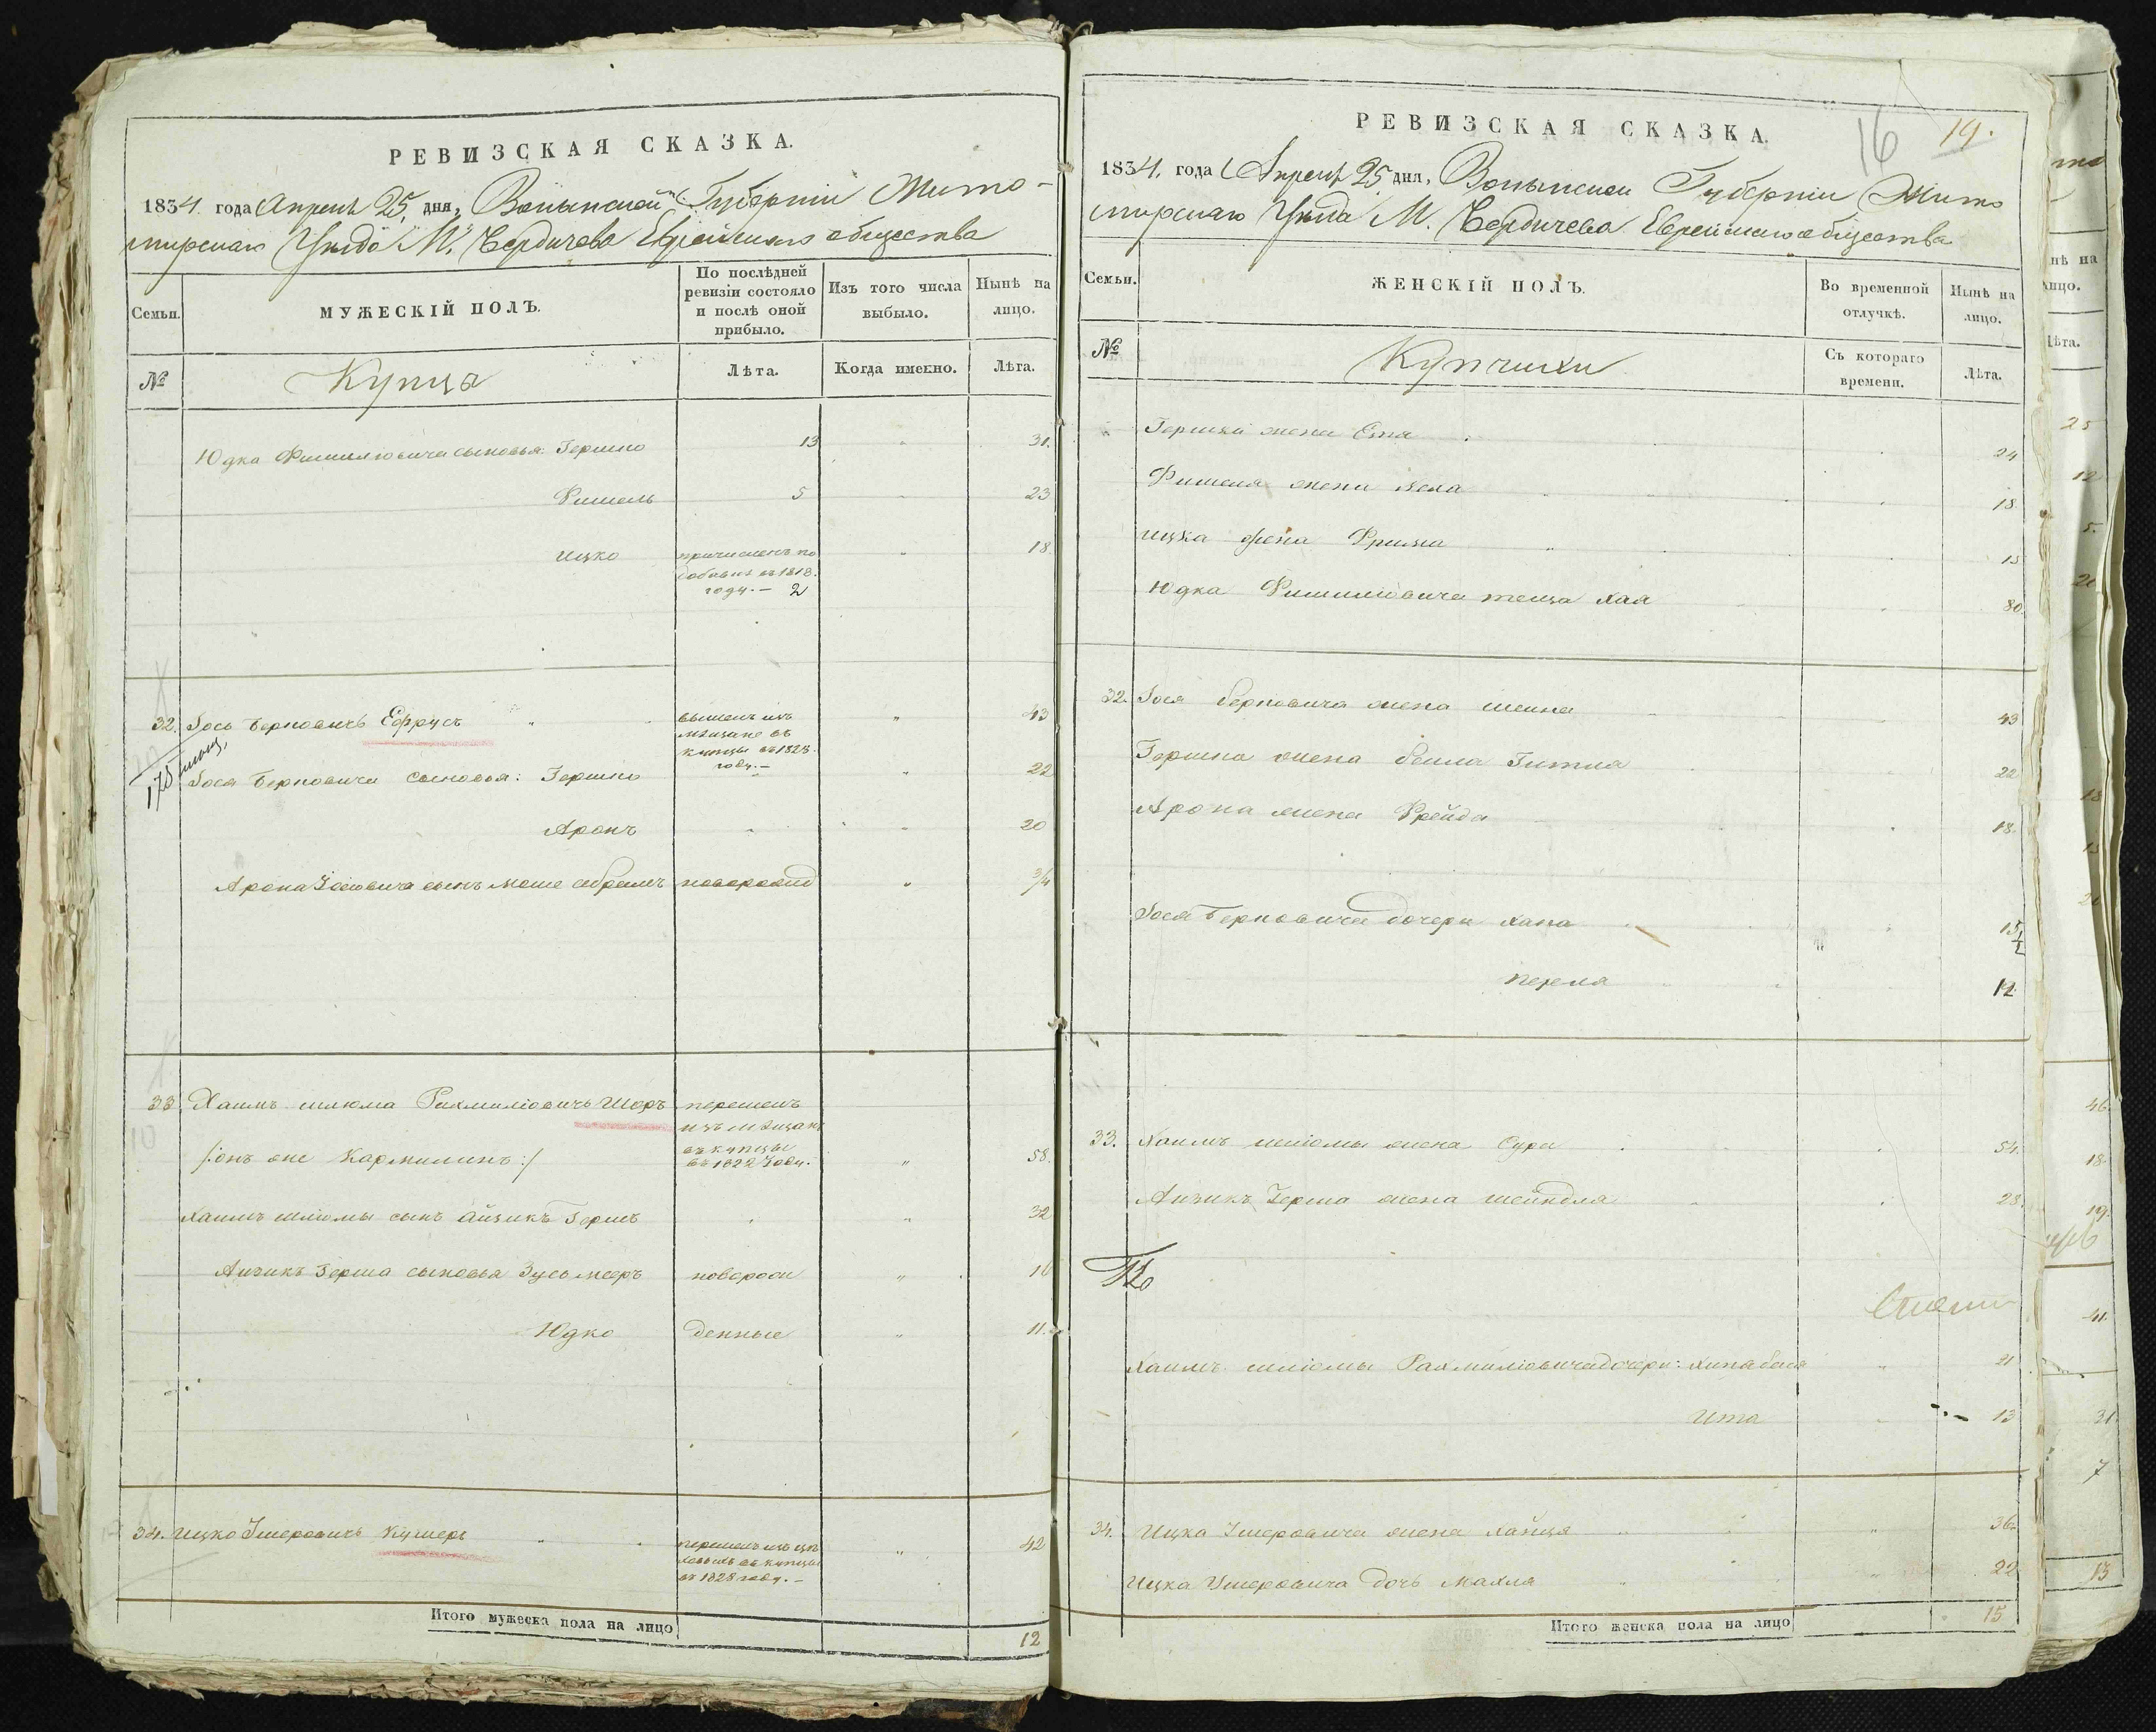 РЕВИЗСКАЯ СКАЗКА.
1834. года Апреля 25, дня, Волынской Губерніи Жито-
мирскаго Уѣзда М. Бердичева Еврейскаго общества
Семьи.
МУЖЕСКІЙ ПОЛЪ.
По послѣдней ревизіи состояло и послѣ оной прибыло.
Изъ того числа выбыло.
Нынѣ на лицо.
№
Купцы
Лѣта.
Когда именно.
Лѣта.
Юдка Фишиліовича сыновья: Гершко 13 " 31.
Фишель 5 " 23
Ицко причисленъ по " 18
добавке въ 1818.
году. — 2
32. Іось Берковичъ Ефрусъ вышелъ изъ " 43
мѣщане въ
купцы въ 1828.
году. —
Іося Берковича сыновья: Гершко " " 22
Аронъ " " 20
Арона Іосіовича сынъ Моше Абрамъ новорожд " 3/4
33. Хаимъ Шлюма Рахмиліовичъ Шоръ перешелъ
изъ мѣщанъ
въ купцы
/:онъ же Кармилинъ:/ въ 1822 году. " 58.
Хаимъ Шліомы сынъ Айзикъ Гершъ " " 32
Айзикъ Герша сыновья Зусь Мееръ новорож " 16
Юдко денные " 11.
34. Ицко Умеровичъ Кушеръ " 42
въ купцы
въ 1828 году. —
Итого мужеска пола на лицо 12
РЕВИЗСКАЯ СКАЗКА.
16 19.
1834. года Апреля 25, дня, Волынской Губерніи Жито
мирскаго Уѣзда М. Бердичева Еврейскаго общества
Семьи.
ЖЕНСКІЙ ПОЛЪ.
Во временной отлучкѣ.
Нынѣ на лицо.
№
Купчихи
Съ котораго времени.
Лѣта.
Гершка жена Етя 24
Фишеля жена 18.
Ицка жена Фрима 15
Юдка Фишиліовича теща Хая 80.
32. Іося Берковича жена 43
Гершка жена Бейла Гитля 22
Арона жена Фрейда 18.
Іося Берковича дочери Хана 15 1/2
Перля 12.
33. Хаимъ Шліомы жена Сура 54.
Айзикъ Герша жена Шейндля 28.
Хаимъ Шліомы Рахмиліовича дочери: Бася " 21
Ита 13
34. Ицка Умеровича жена Хайця " 36.
Ицка Умеровича дочь Махля 22
Итого женска пола на лицо 15